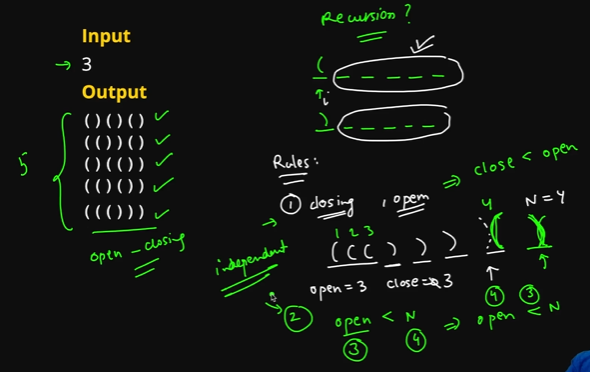 Recursion ?
Input
→ 3
Output
( _ _ _ _ _
i
) _ _ _ _ _
5
()()() ✓
()(()) ✓
(())() ✓
(()()) ✓
((())) ✓
open - closing
Rules:
① closing , open ⇒ close < open
independent
1 2 3
( ( ( ) ) )
4
N = 4
open = 3 close = 3
④ ③
② open < N ⇒ open < N
③ ④